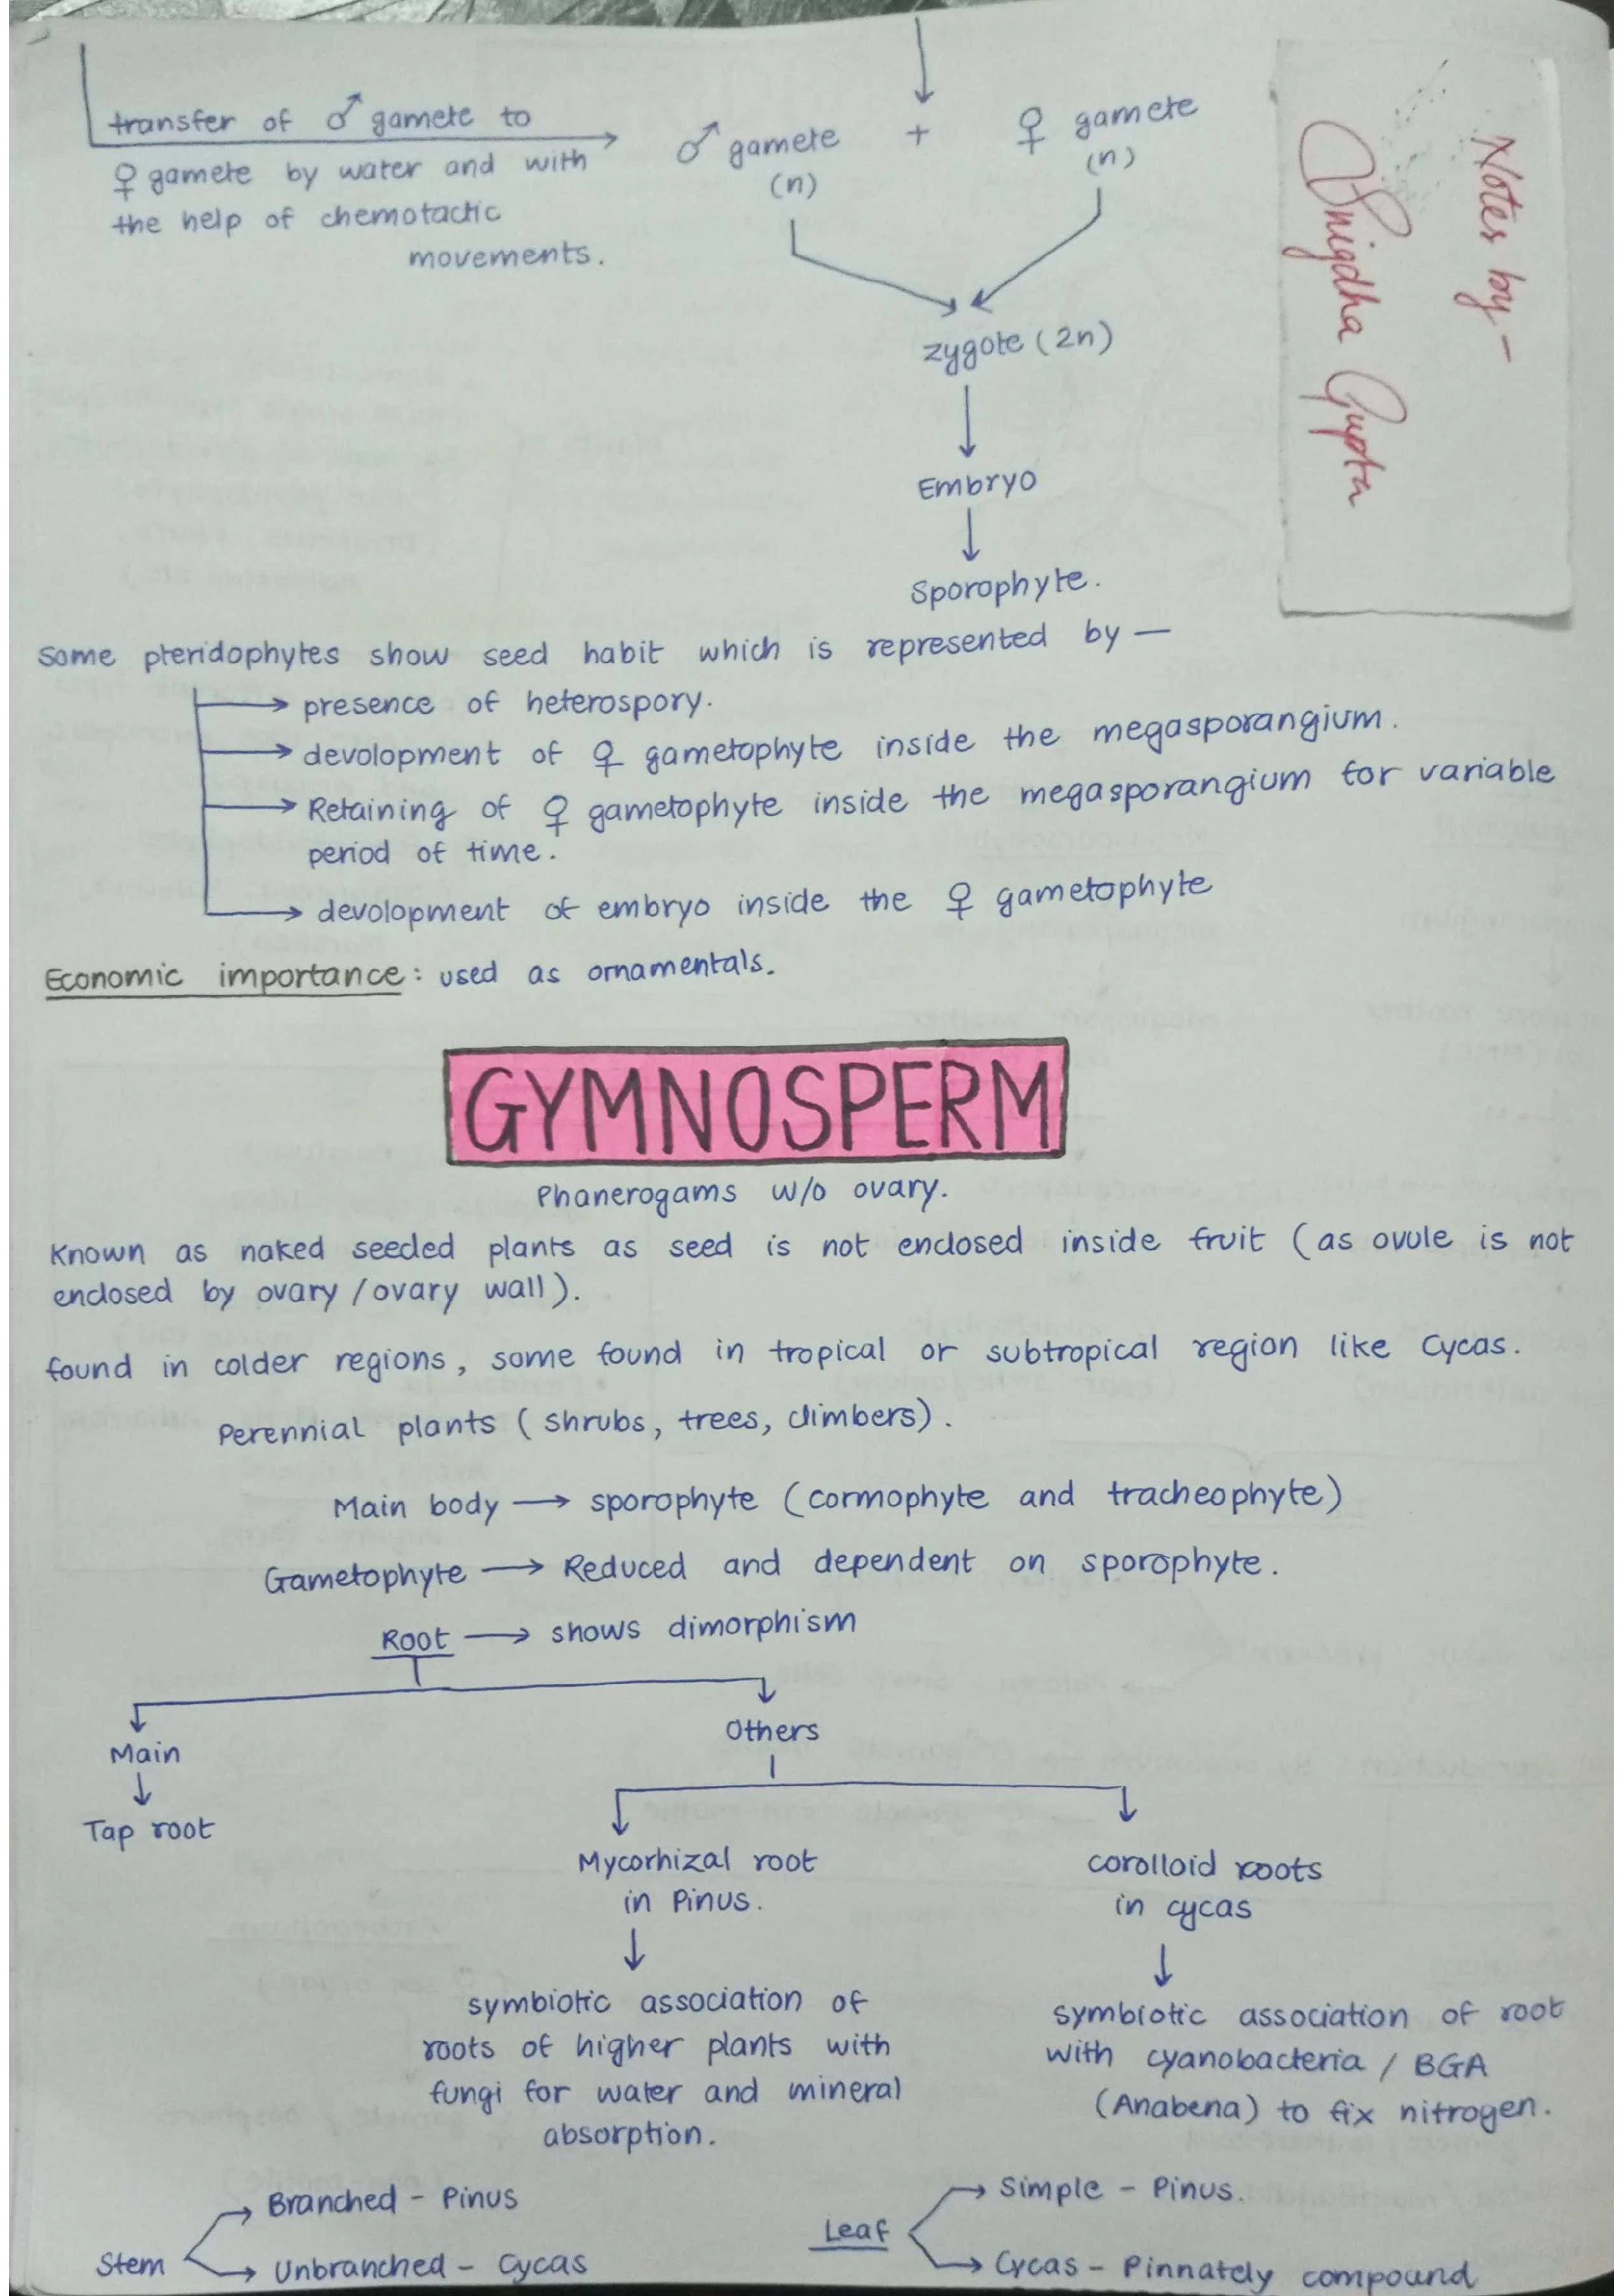 transfer of ♂ gamete to
♀ gamete by water and with
the help of chemotactic
movements.
♂ gamete + ♀ gamete
(n) (n)
zygote (2n)
Embryo
Sporophyte.
Notes by -
Snigdha Gupta
Some pteridophytes show seed habit which is represented by —
presence of heterospory.
devolopment of ♀ gametophyte inside the megasporangium.
Retaining of ♀ gametophyte inside the megasporangium for variable
period of time.
devolopment of embryo inside the ♀ gametophyte
Economic importance: used as ornamentals.
GYMNOSPERM
Phanerogams w/o ovary.
Known as naked seeded plants as seed is not enclosed inside fruit (as ovule is not
enclosed by ovary / ovary wall).
found in colder regions, some found in tropical or subtropical region like Cycas.
Perennial plants (shrubs, trees, climbers).
Main body → sporophyte (cormophyte and tracheophyte)
Gametophyte → Reduced and dependent on sporophyte.
Root → shows dimorphism
Main
Tap root
Others
Mycorhizal root
in Pinus.
symbiotic association of
roots of higher plants with
fungi for water and mineral
absorption.
corolloid roots
in cycas
symbiotic association of root
with cyanobacteria / BGA
(Anabena) to fix nitrogen.
Stem
Branched - Pinus
Unbranched - Cycas
Leaf
Simple - Pinus.
Cycas - Pinnately compound